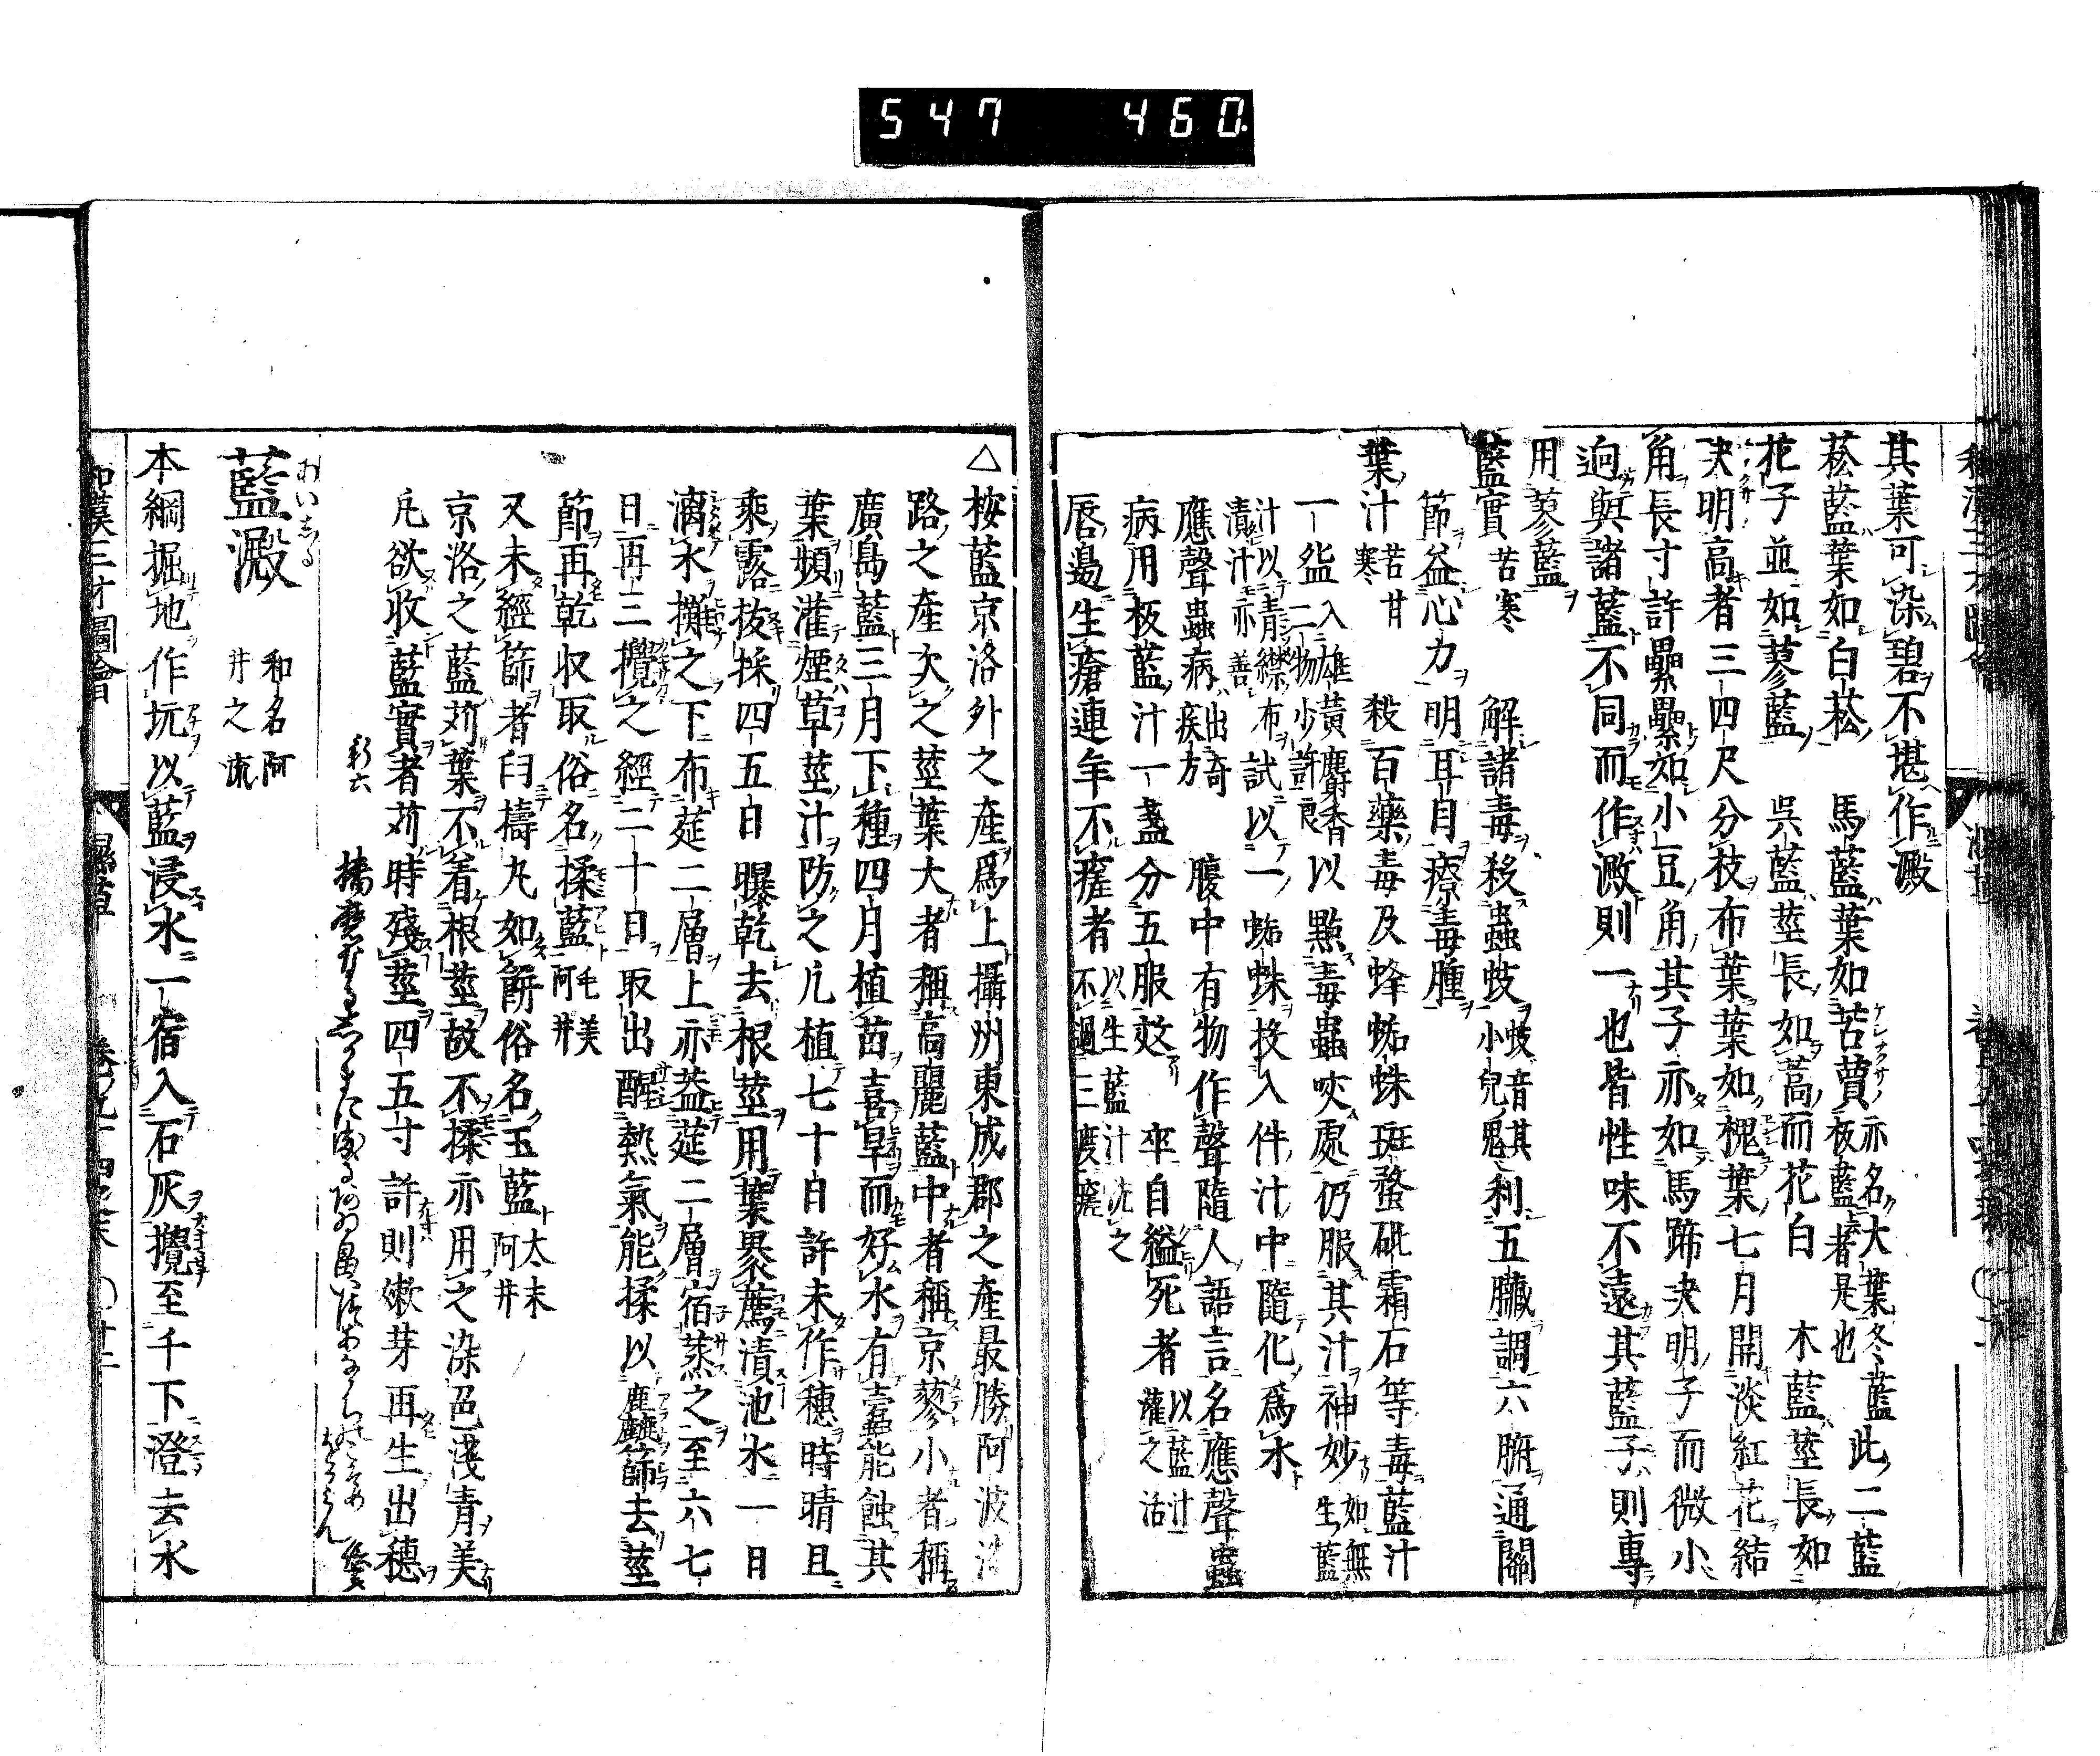 547 460.
其葉可染碧不堪作澱
菘藍葉如白菘 馬藍葉如苦蕒亦名大葉冬藍此二藍
板藍者是也
花子並如蓼藍 吳藍莖長如蒿而花白 木藍莖長如
決明高者三四尺分枝布葉葉如槐葉七月開淡紅花結
角長寸許纍纍如小豆角其子亦如馬蹄決明子而微小
迥與諸藍不同而作澱則一也皆性味不遠其藍子則專
用蓼藍
藍實 苦寒 解諸毒殺蟲蚑 蚑音其
小兒鬼 利五臟調六腑通關
節益心力明耳目療毒腫
葉汁 苦甘
寒 殺百藥毒及蜂蜘蛛斑蝥砒霜石等毒藍汁
一盌 入雄黃麝香
二物少許 以點毒蟲咬處仍服其汁神妙 如無
生藍
汁以青
漬汁亦善 布 試以一蜘蛛投入件汁中隨化爲水
應聲蟲病 出奇
疾方 腹中有物作聲隨人語言名應聲蟲
病用板藍汁一盞分五服效 卒自縊死者 以藍汁
灌之活
唇邉生瘡連年不瘥者 以生藍汁洗之
不過三度瘥
△桉藍京洛外之產爲上攝州東成郡之產最勝阿波
路之產次之莖葉大者稱高麗藍中者稱京蓼小者稱
廣島藍三月下種四月植苗喜旱而好水有蠧能蝕其
葉頻灌煙草莖汁防之凡植七十日許未作穗時晴且
乘露拔採四五日曝乾去根莖用葉褁薦漬池水一日
滴水攤之下布莚二層上亦葢莚二層宿蒸之至六七
日再三攪之經二十日取出醒熱氣能揉以麁篩去莖
節再乾収取俗名揉藍 毛美
阿井
又未經篩者臼擣丸如餠俗名玉藍 太末
阿井
京洛之藍苅葉不着根莖故不揉亦用之染色淺青美
凡欲收藍實者苅時殘莖四五寸許則嫩芽再生出穗
新六
藍澱 あいしる
和名阿
井之流
本綱掘地作坑以藍浸水一宿入石灰攪至千下澄去水
和漢三才圖會 濕草 卷九十四之末